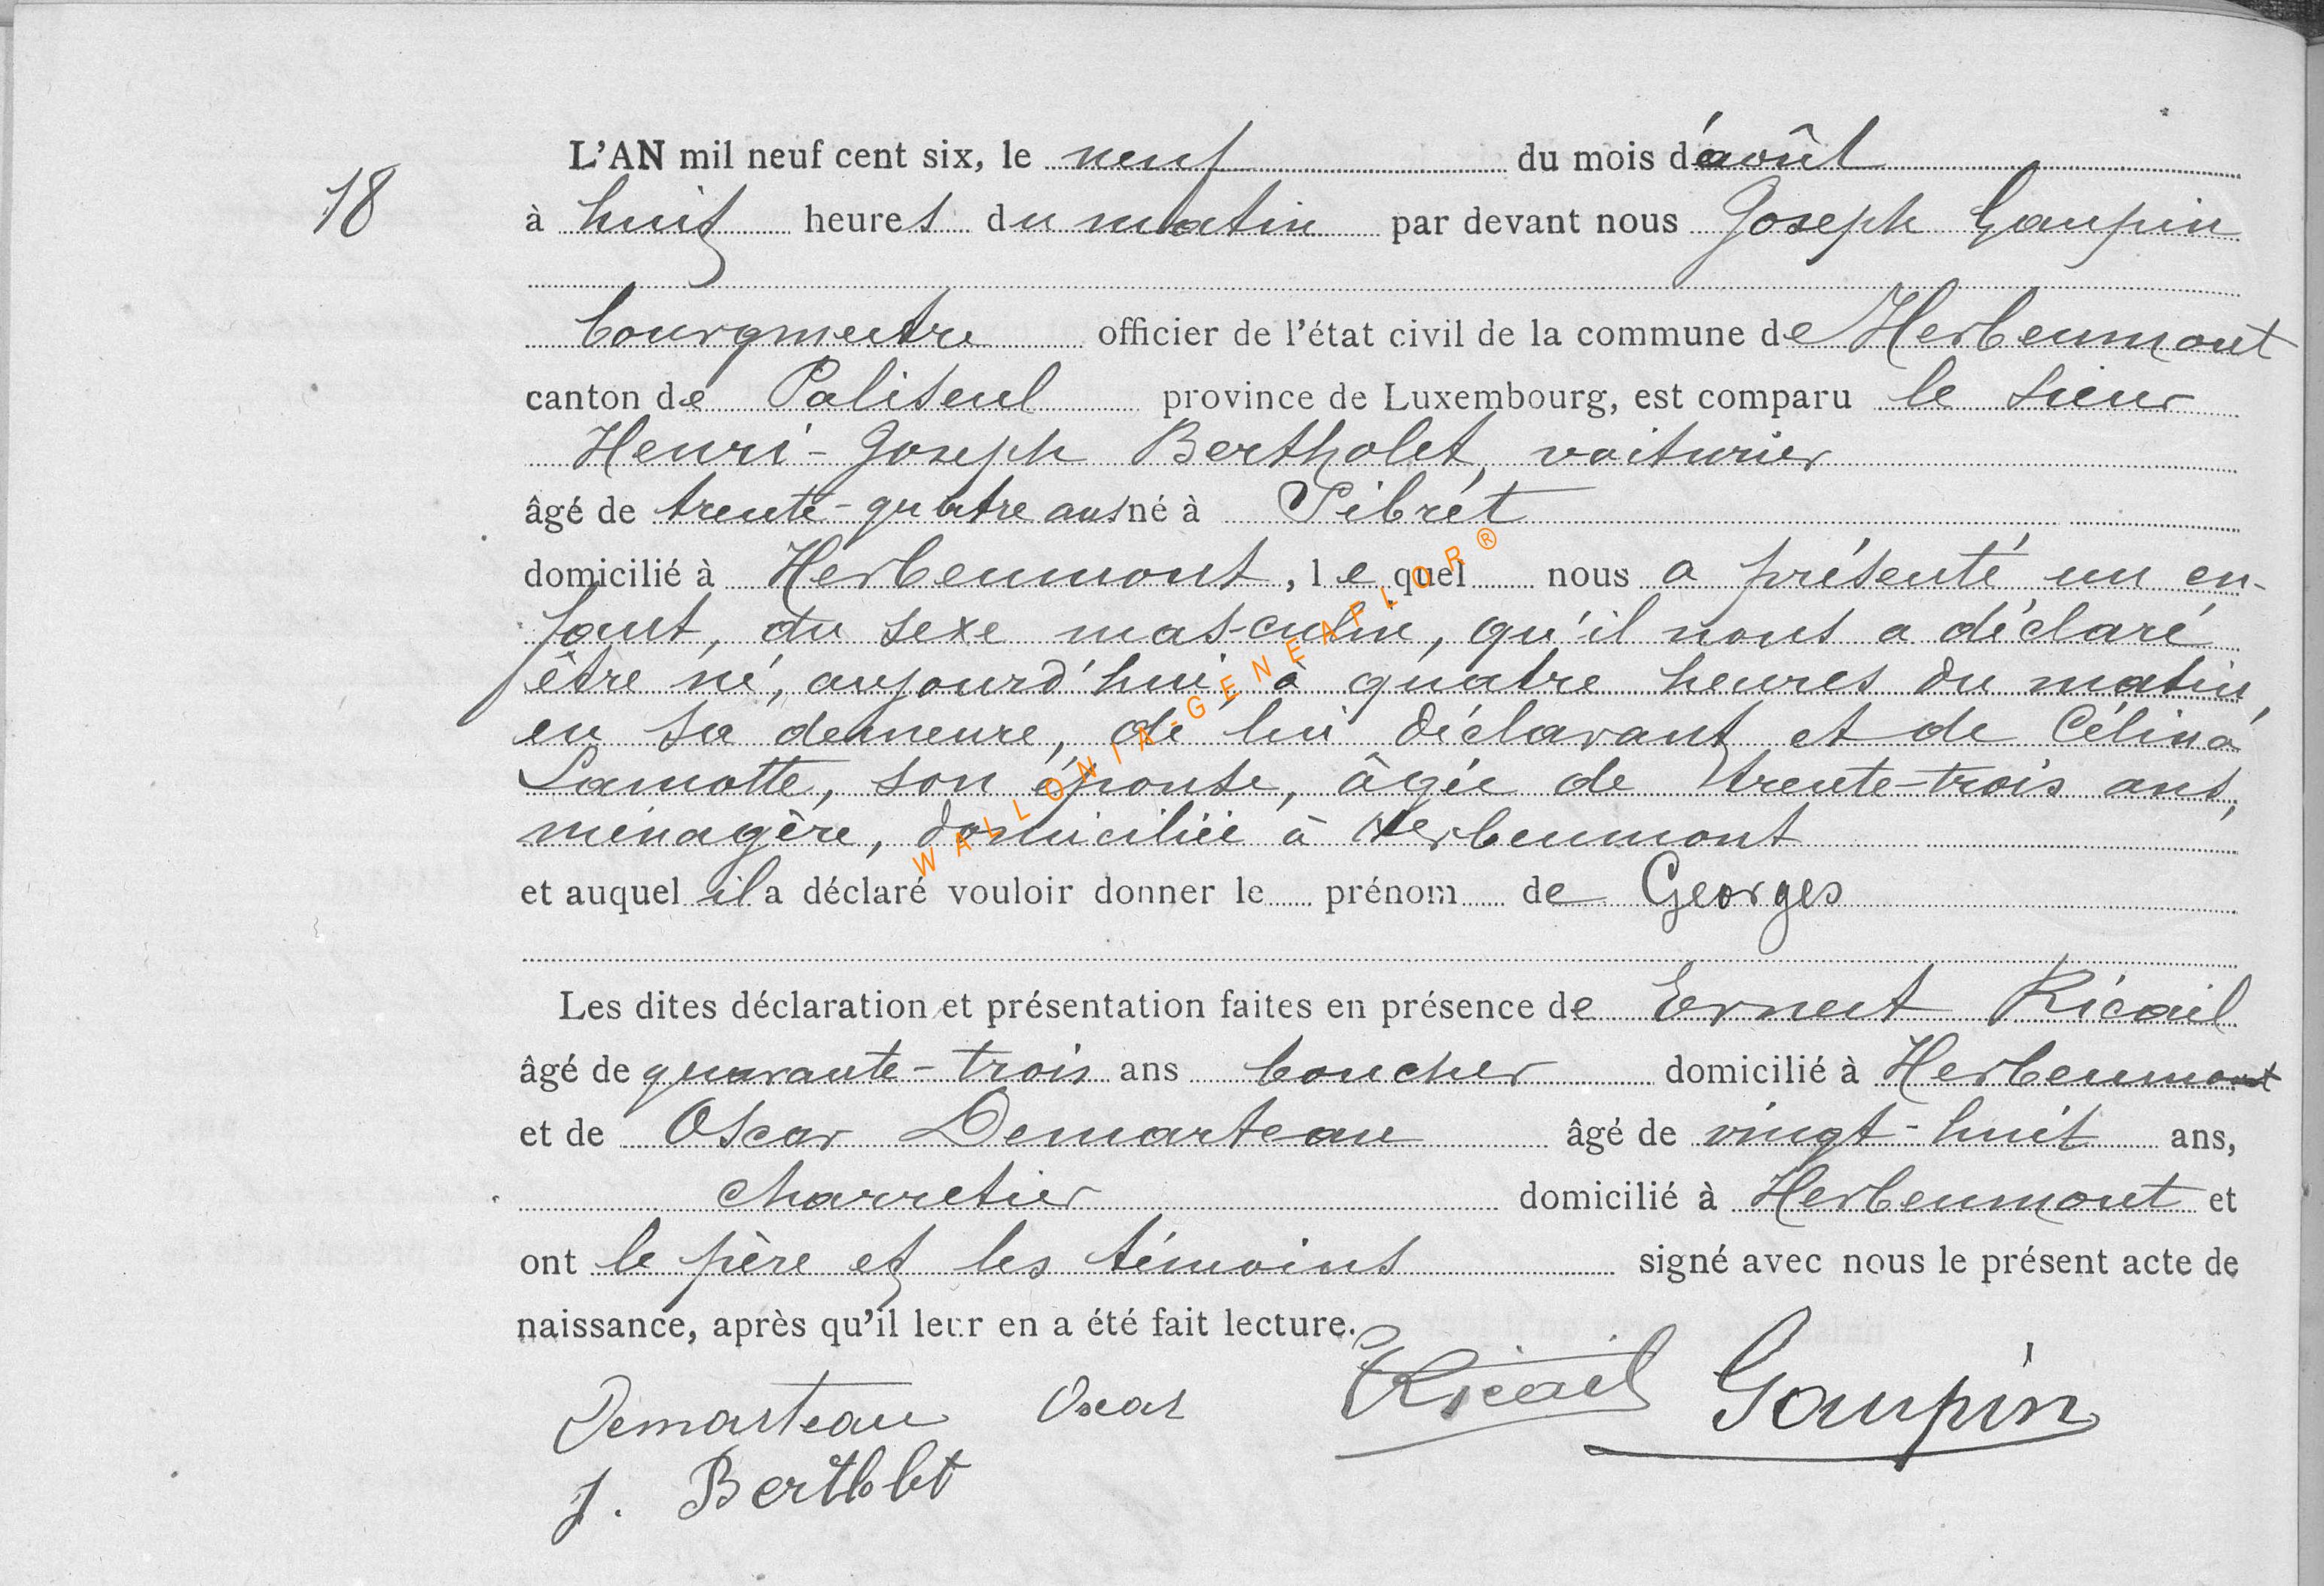 18
L'AN mil neuf cent six, le neuf du mois d'août
à huit heures du matin par devant nous Joseph Gaupin
bourgmestre officier de l'état civil de la commune de Herbeumont
canton de Paliseul province de Luxembourg, est comparu le sieur
Henri-Joseph Bertholet, voiturier
âgé de trente-quatre ans né à Sibret
domicilié à Herbeumont, lequel nous a présenté un en-
fant, du sexe masculin, qu'il nous a déclaré
être né, aujourd'hui, à quatre heures du matin,
en sa demeure, de lui déclarant et de Célina
Lamotte, son épouse, âgée de trente-trois ans,
ménagère, domiciliée à Herbeumont
et auquel il a déclaré vouloir donner le prénom de Georges
Les dites déclaration et présentation faites en présence de Ernest Ricail
âgé de quarante-trois ans boucher domicilié à Herbeumont
et de Oscar Demarteau âgé de vingt-huit ans,
charretier domicilié à Herbeumont et
ont le père et les témoins signé avec nous le présent acte de
naissance, après qu'il leur en a été fait lecture.
Demarteau Oscar Ricail Gaupin
J. Bertholet
WALLONIA-GENEAFLOR®